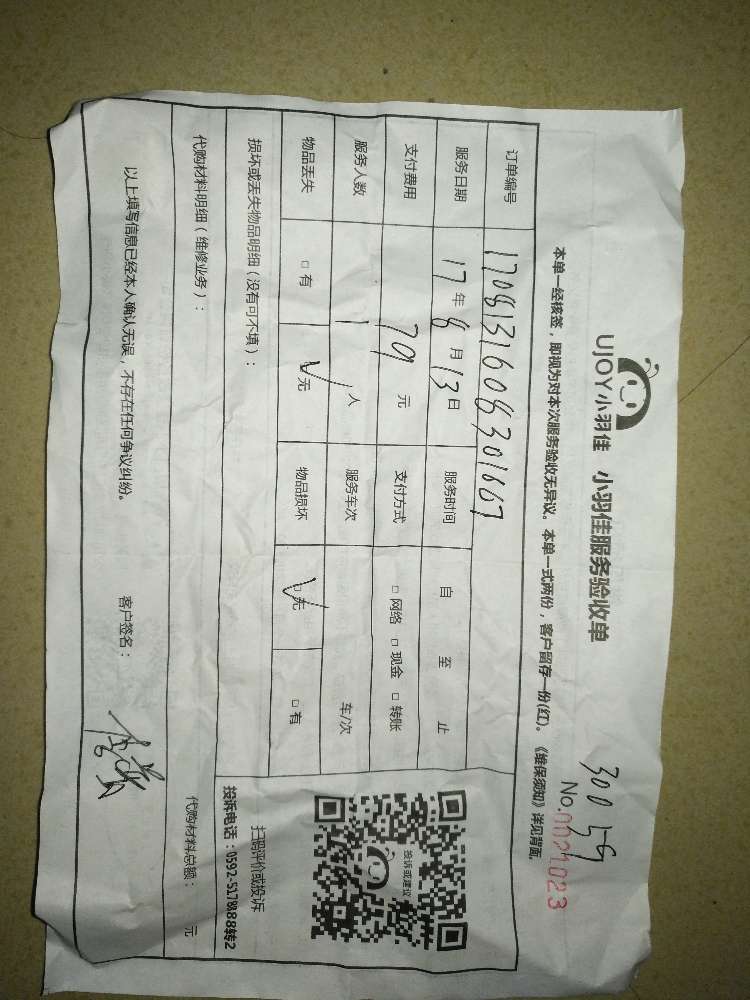 300 59
No.0021023
UJOY小羽佳 小羽佳服务验收单
本单一经核签，即视为对本次服务验收无异议。本单一式两份，客户留存一份(红)。《维保须知》详见背面
订单编号 1708131608301667
服务日期 17年8月13日 服务时间 自 至 止
支付费用 79元 支付方式 □网络 □现金 □转账
服务人数 1人 服务车次 车/次
物品丢失 □有 √无 物品损坏 □√无 □有
投诉或建议
扫码评价或投诉
投诉电话：0592-5178888转2
损坏或丢失物品明细(没有可不填)：
代购材料明细(维修业务)： 代购材料总额： 元
以上填写信息已经本人确认无误，不存在任何争议纠纷。 客户签名：